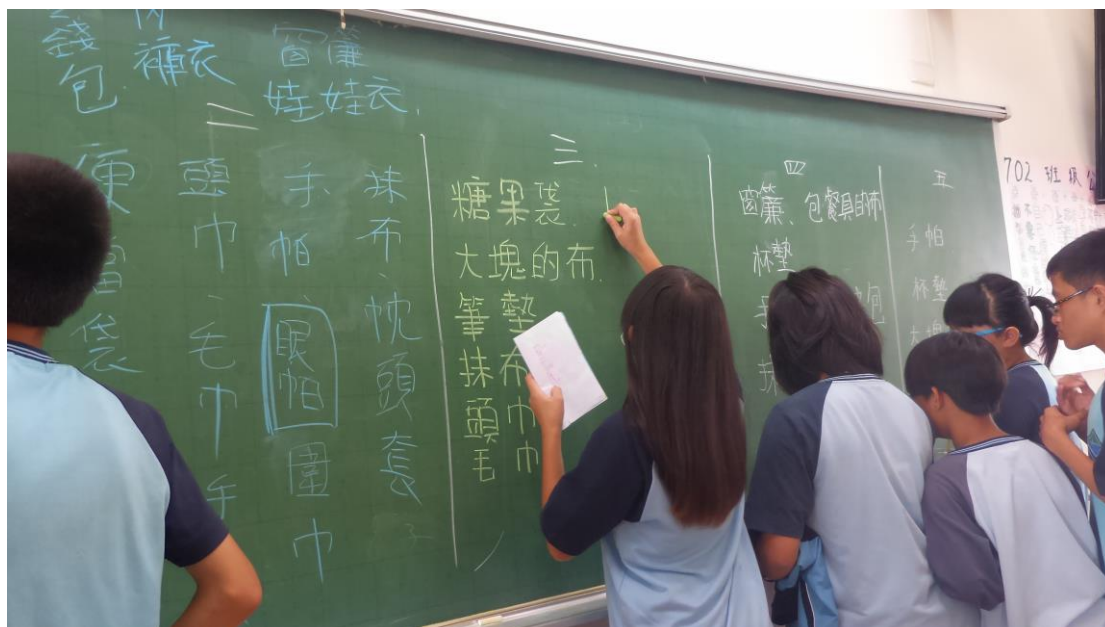 錢包
褲衣
窗簾
娃娃衣
二
便當袋
頭巾、毛巾手
手帕、眼帕圍巾
抹布、枕頭套
三.
糖果袋
大塊的布
筆墊
抹布
頭巾
毛巾
四
窗簾、包餐具的布
杯墊
包
五
手帕
杯墊
702 班級公